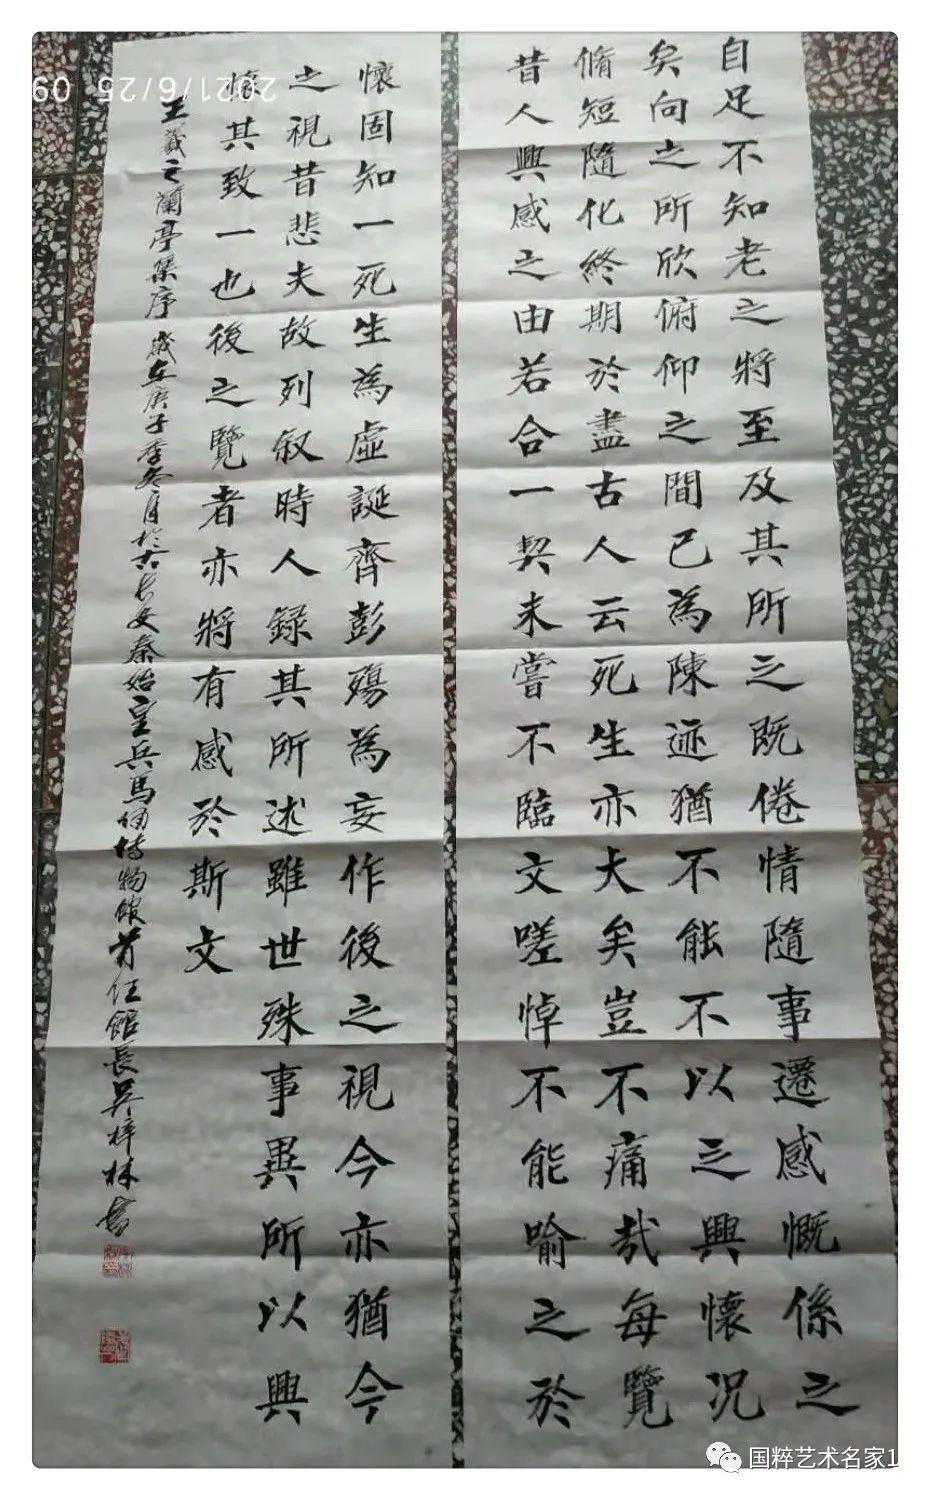 自足不知老之將至及其所之既倦情隨事遷感慨係之
矣向之所欣俯仰之間已為陳迹猶不能不以之興懷況
脩短隨化終期於盡古人云死生亦大矣豈不痛哉每覽
昔人興感之由若合一契未嘗不臨文嗟悼不能喻之於
懷固知一死生為虛誕齊彭殤為妄作後之視今亦猶今
之視昔悲夫故列叙時人録其所述雖世殊事異所以興
懷其致一也後之覽者亦將有感於斯文
王羲之蘭亭集序 歲在庚子季冬月於古長安秦始皇兵馬俑博物館首任館長吳梓林書
2021/6/25 09
国粹艺术名家1